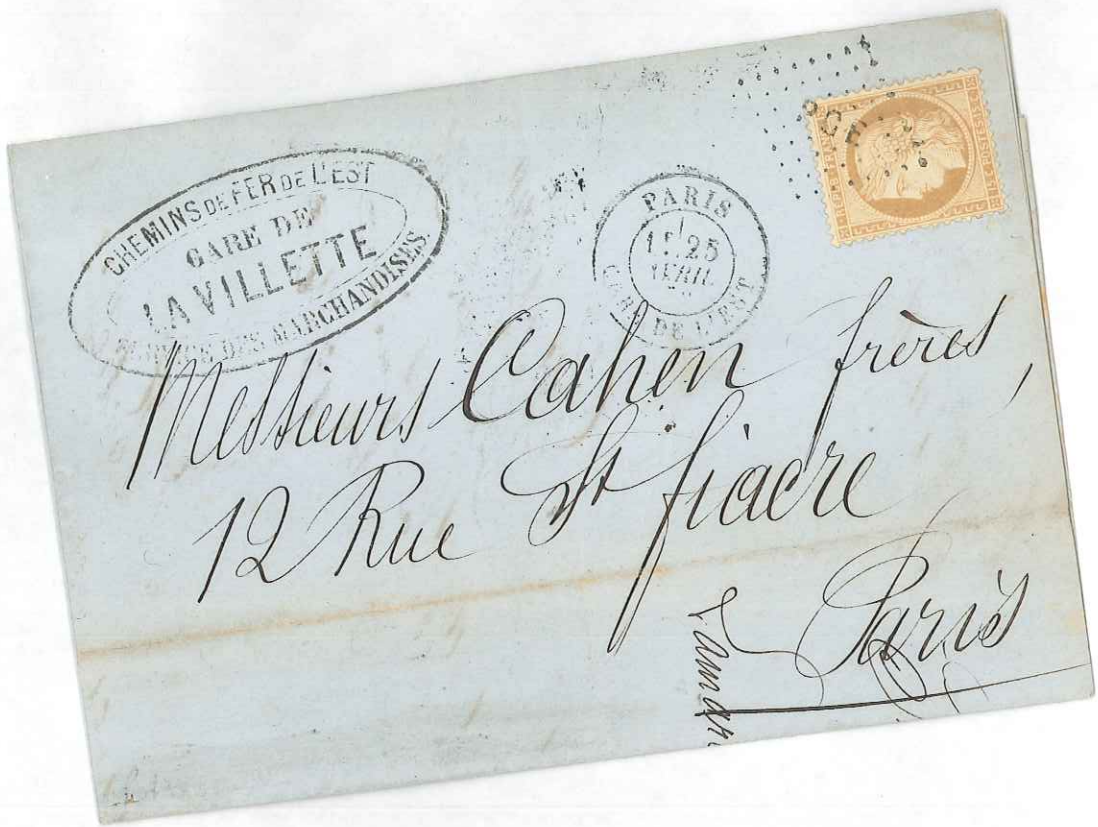 CHEMINS DE FER DE L'EST
GARE DE
LA VILLETTE
DES MARCHANDISES
PARIS
25
AVRIL
GARE DE L'EST
Messieurs Cahen frères,
12 Rue St fiacre
Paris